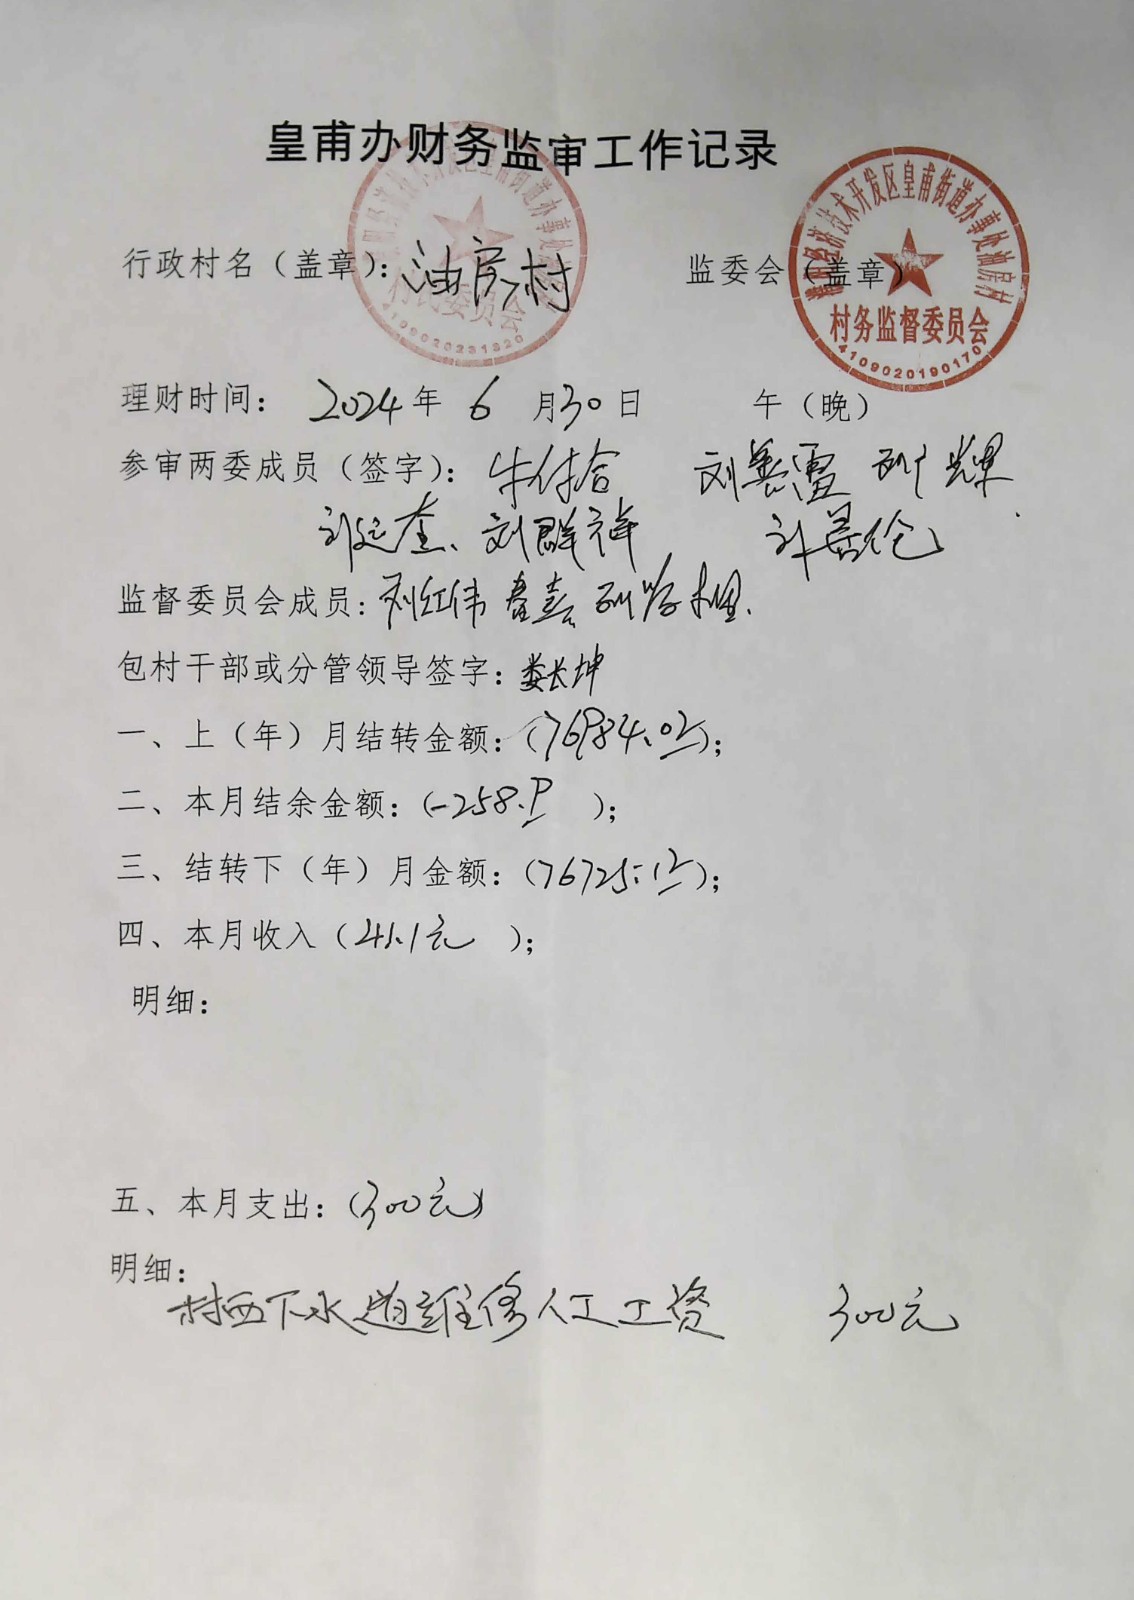 皇甫办财务监审工作记录
行政村名（盖章）：油房村 监委会（盖章）
经济技术开发区皇甫街道办事处油房村
村务监督委员会
4109020190170
村民委员会
4109020231820
理财时间： 2024年 6 月30日 午（晚）
参审两委成员（签字）： 牛付合 刘善雷
刘运奎、刘群祥 刘善伦
监督委员会成员：刘红伟
包村干部或分管领导签字：娄长坤
一、上（年）月结转金额：(76984.02)；
二、本月结余金额：(-258.9 )；
三、结转下（年）月金额：(76725.12)；
四、本月收入（41.1元 ）；
明细：
五、本月支出：(300元)
明细：
村西下水道维修人工工资 300元